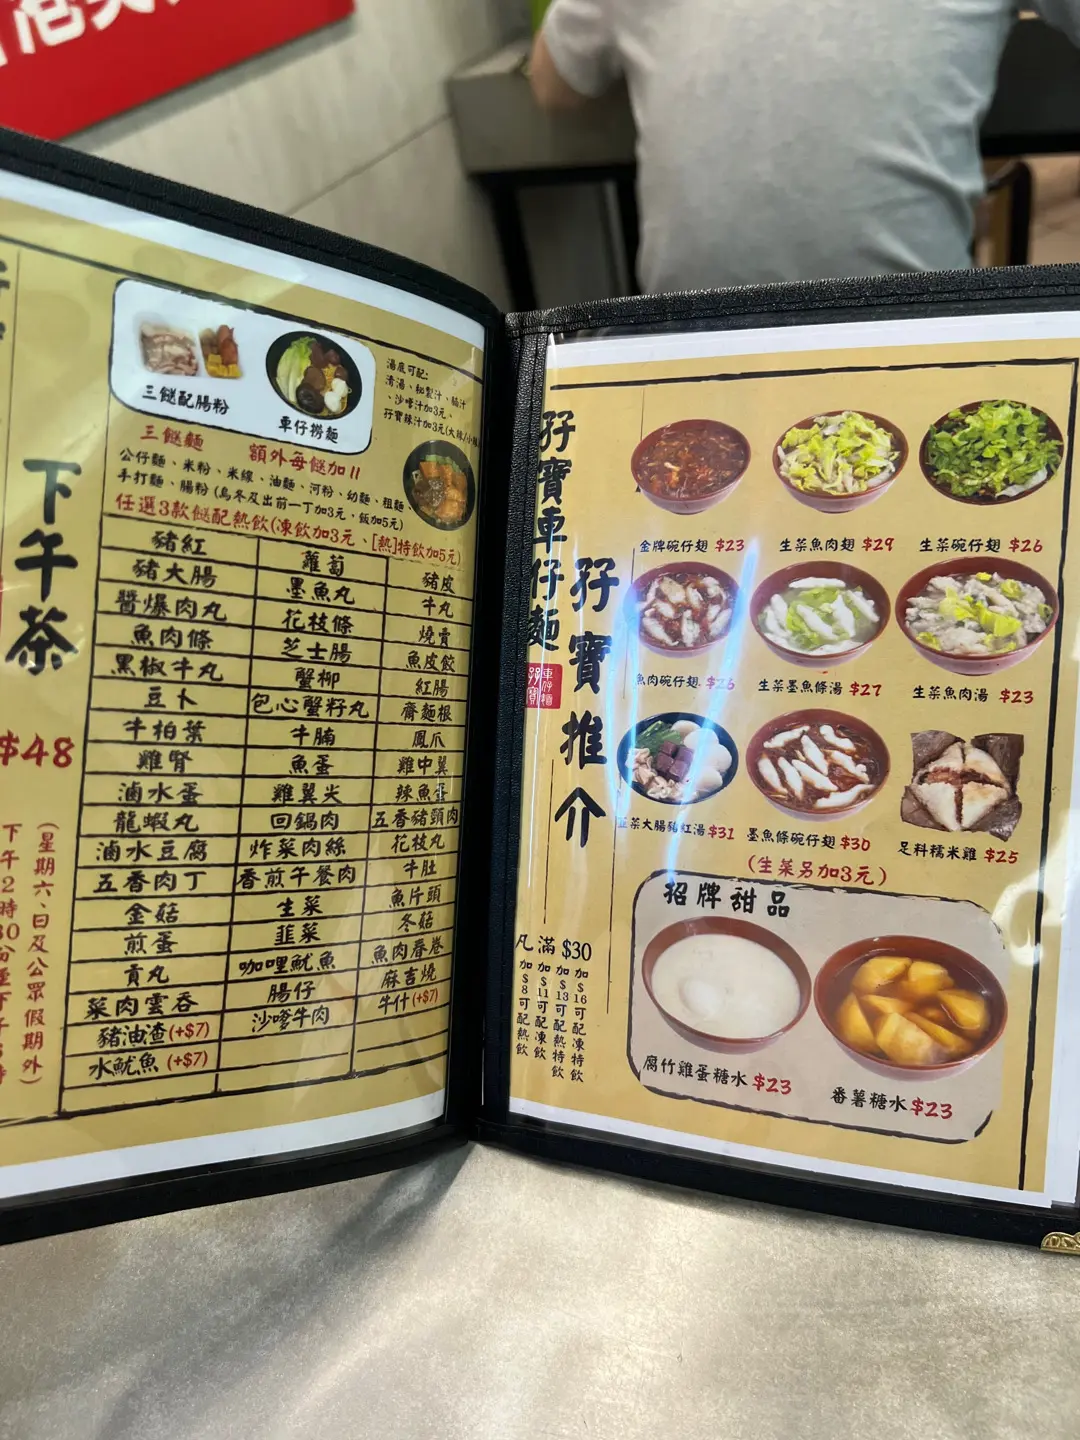 下午茶
$48
(星期六、日及公眾假期外)
三餸配腸粉
車仔撈麵
湯底可配:
清湯、秘製汁、腩汁
、沙嗲汁加3元、
孖寶辣汁加3元(大辣/小辣)
三餸麵 額外每餸加11
公仔麵、米粉、米線、油麵、河粉、幼麵、粗麵、
手打麵、腸粉 (烏冬及出前一丁加3元、飯加5元)
任選3款餸配熱飲(凍飲加3元、[熱]特飲加5元)
豬紅 蘿蔔 豬皮
豬大腸 墨魚丸 牛丸
醬爆肉丸 花枝條 燒賣
魚肉條 芝士腸 魚皮餃
黑椒牛丸 蟹柳 紅腸
豆卜 包心蟹籽丸 齋麵根
牛柏葉 牛腩 鳳爪
雞腎 魚蛋 雞中翼
滷水蛋 雞翼尖 辣魚蛋
龍蝦丸 回鍋肉 五香豬頭肉
滷水豆腐 炸菜肉絲 花枝丸
五香肉丁 香煎午餐肉 牛肚
金菇 生菜 魚片頭
煎蛋 韭菜 冬菇
貢丸 咖哩魷魚 魚肉春卷
菜肉雲吞 腸仔 麻吉燒
豬油渣(+$7) 沙嗲牛肉 牛什(+$7)
水魷魚(+$7)
孖寶車仔麵
孖寶
車仔麵
孖寶推介
金牌碗仔翅 $23
生菜魚肉翅 $29
生菜碗仔翅 $26
魚肉碗仔翅 $26
生菜墨魚條湯 $27
生菜魚肉湯 $23
韭菜大腸豬紅湯 $31
墨魚條碗仔翅 $30
足料糯米雞 $25
(生菜另加3元)
凡滿$30
加$8可配熱飲
加$11可配凍飲
加$13可配熱特飲
加$16可配凍特飲
招牌甜品
腐竹雞蛋糖水 $23
番薯糖水 $23